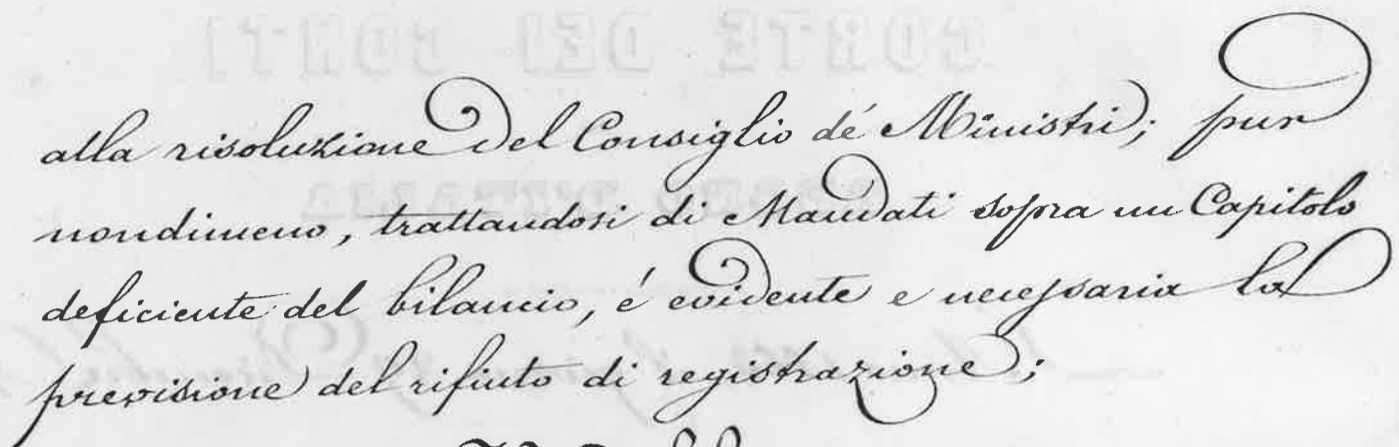 alla risoluzione del Consiglio dé Ministri; pur
nondimeno, trattandosi di Mandati sopra un Capitolo
deficiente del bilancio, é evidente e necessaria la
previsione del rifiuto di registrazione;